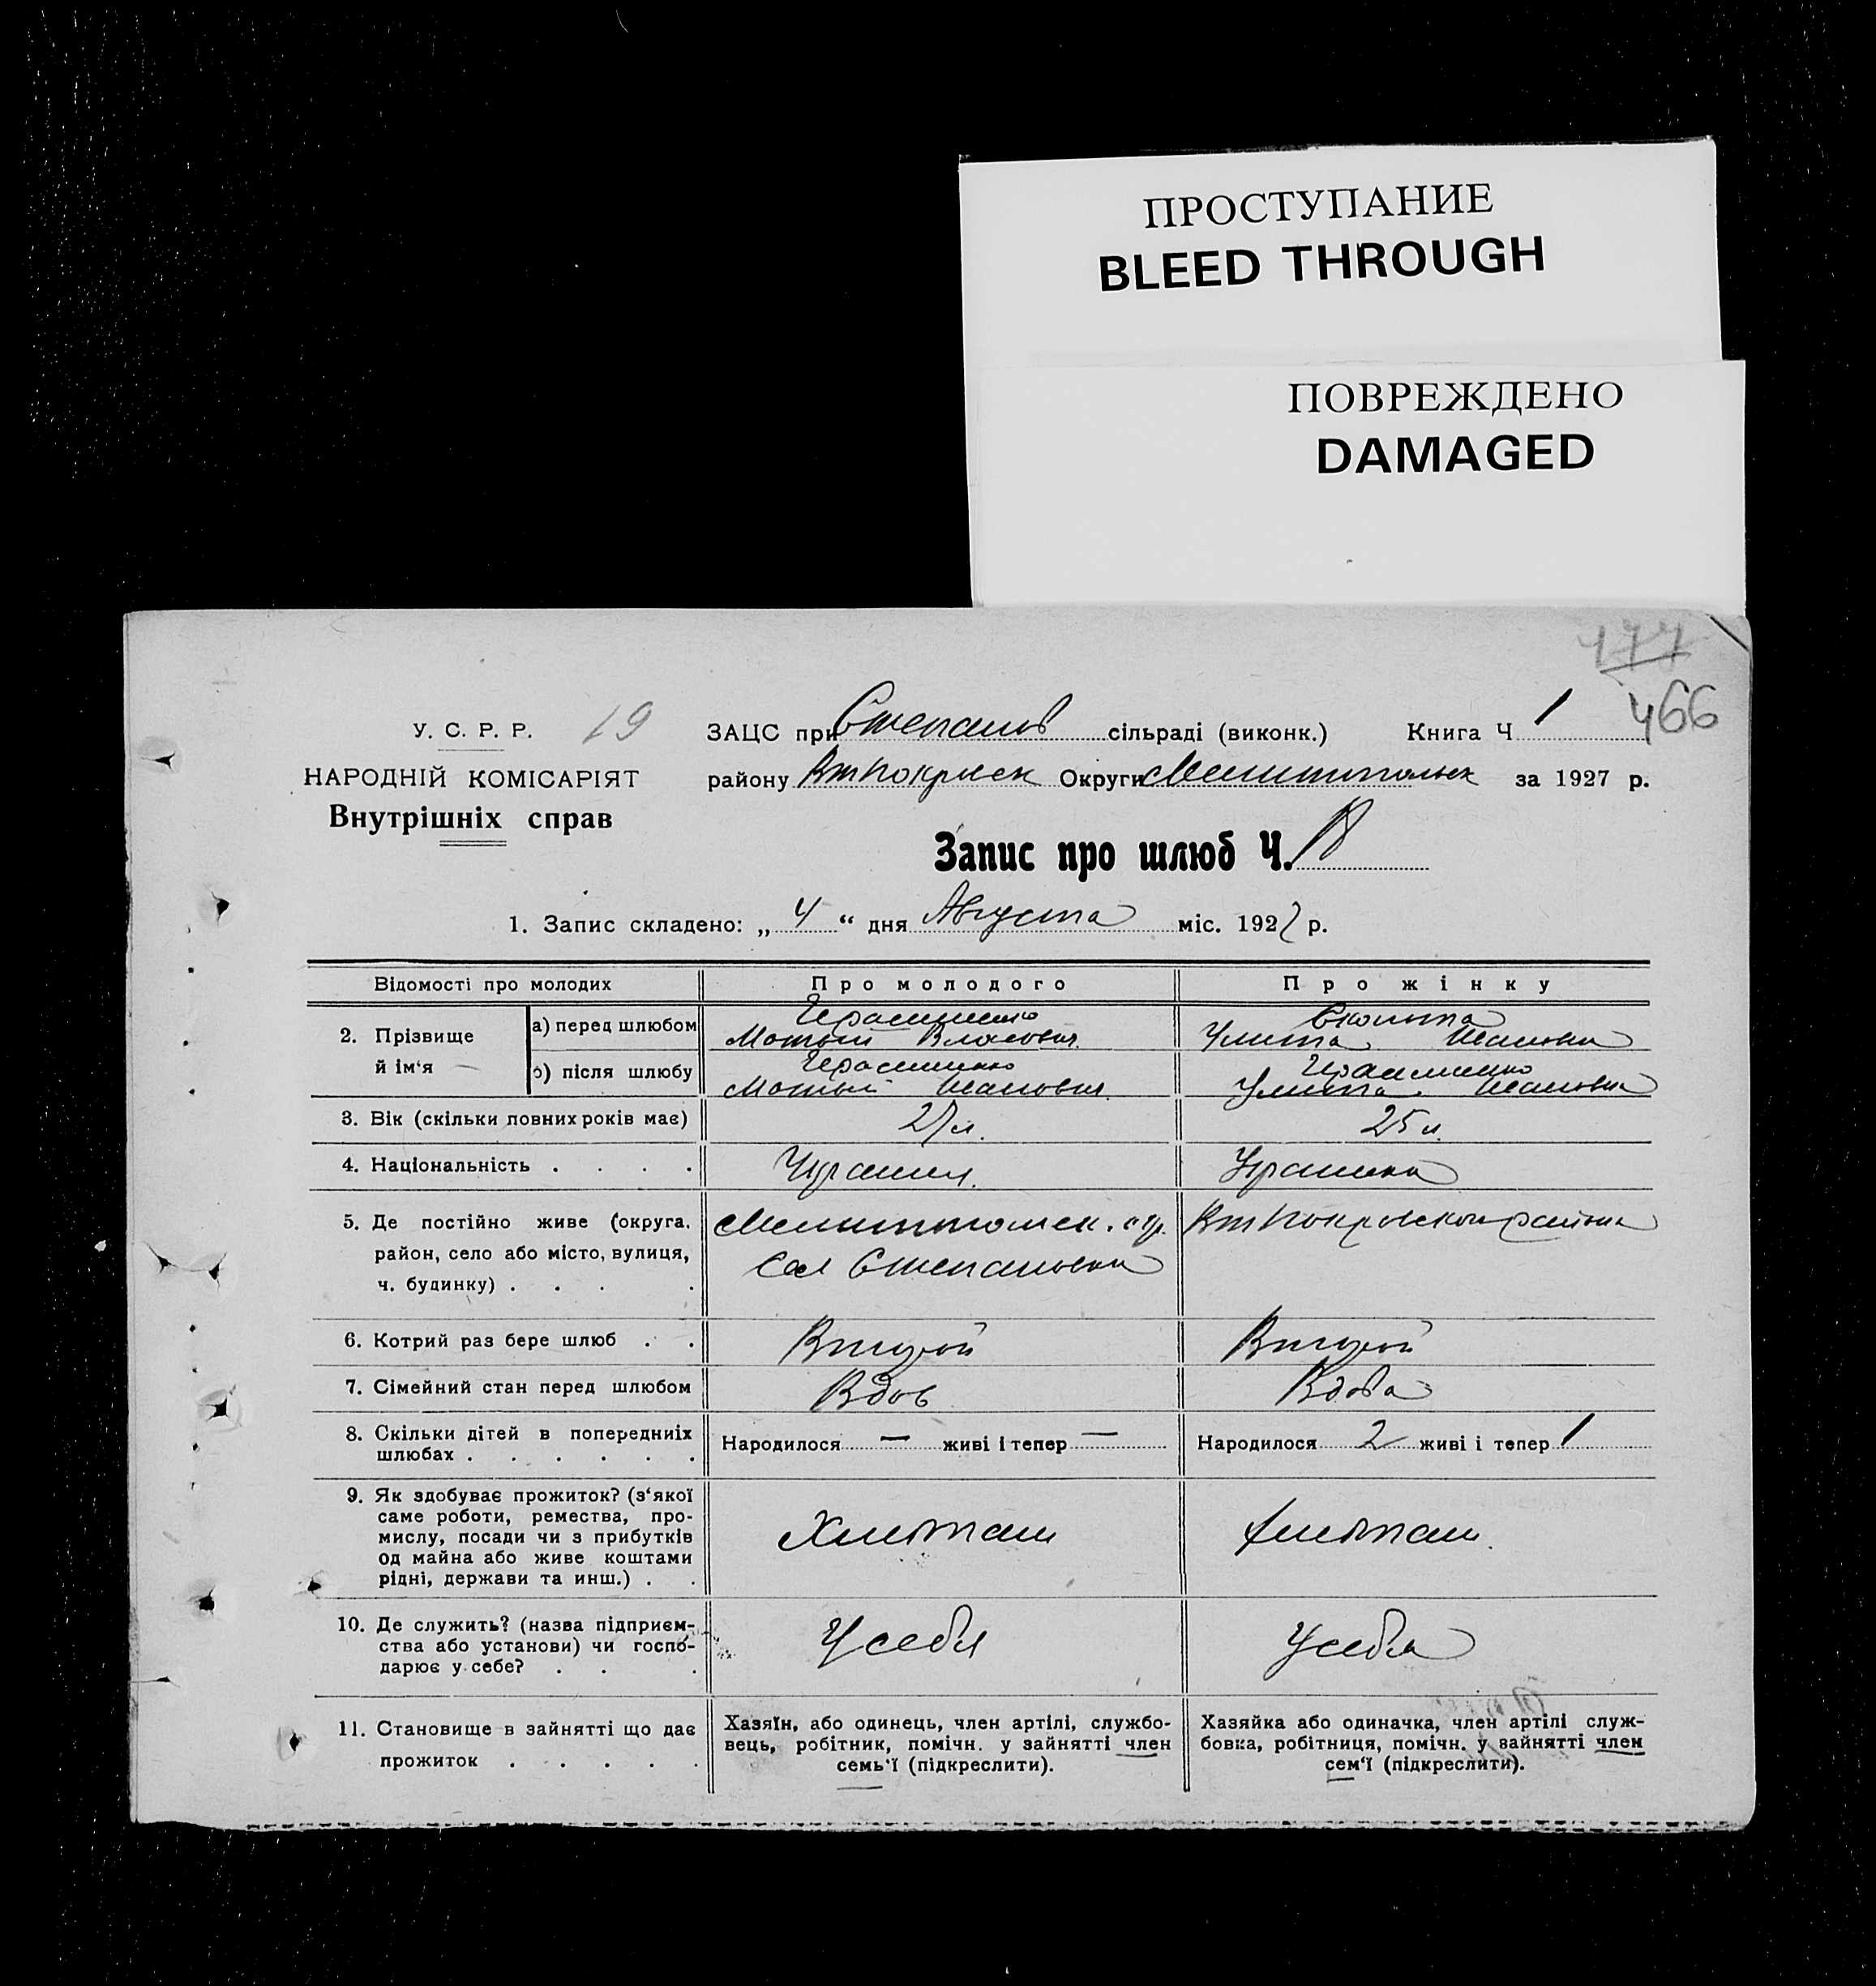 ПРОСТУПАНИЕ
BLEED THROUGH
ПОВРЕЖДЕНО
DAMAGED
477
466
У. С. Р. Р. 19
НАРОДНІЙ КОМІСАРІЯТ
Внутрішніх справ
ЗАЦС при Степанов сільраді (виконк.) Книга Ч 1
району Округи Мелитопольск за 1927 р.
Запис про шлюб Ч.
1. Запис складено: „ 4 “ дня Августа міс. 1927 р.
Відомості про молодих Про молодого Про жінку
2. Прізвище й ім‘я
а) перед шлюбом Герасименко Мотвій Власович Улита Ивановна
б) після шлюбу Герасименко Мотвій Иванович Герасименко Улита Ивановна
3. Вік (скільки повних років має) 27 л. 25 л.
4. Національність . . . . Украинка
5. Де постійно живе (округа, Мелитопольск. окр. Вт Покровского района
район, село або місто, вулиця, Сел Степановка
ч. будинку) . . . .
6. Котрий раз бере шлюб . . Второй Второй
7. Сімейний стан перед шлюбом Вдов Вдова
8. Скільки дітей в попередниіх Народилося — живі і тепер — Народилося 2 живі і тепер 1
шлюбах . . . . . .
9. Як здобуває прожиток? (з‘якої
саме роботи, ремества, про-
мислу, посади чи з прибутків Хлѣбопаш Хлѣбопаш
од майна або живе коштами
рідні, держави та инш.) . .
10. Де служить? (назва підприєм-
ства або установи) чи госпо- У себя У себя
дарює у себе? . . .
11. Становище в зайнятті що дає
прожиток . . . . .
Хазяїн, або одинець, член артілі, службо-
вець, робітник, помічн. у зайнятті член
семь‘ї (підкреслити).
Хазяйка або одиначка, член артілі служ-
бовка, робітниця, помічн. у зайнятті член
сем‘ї (підкреслити).